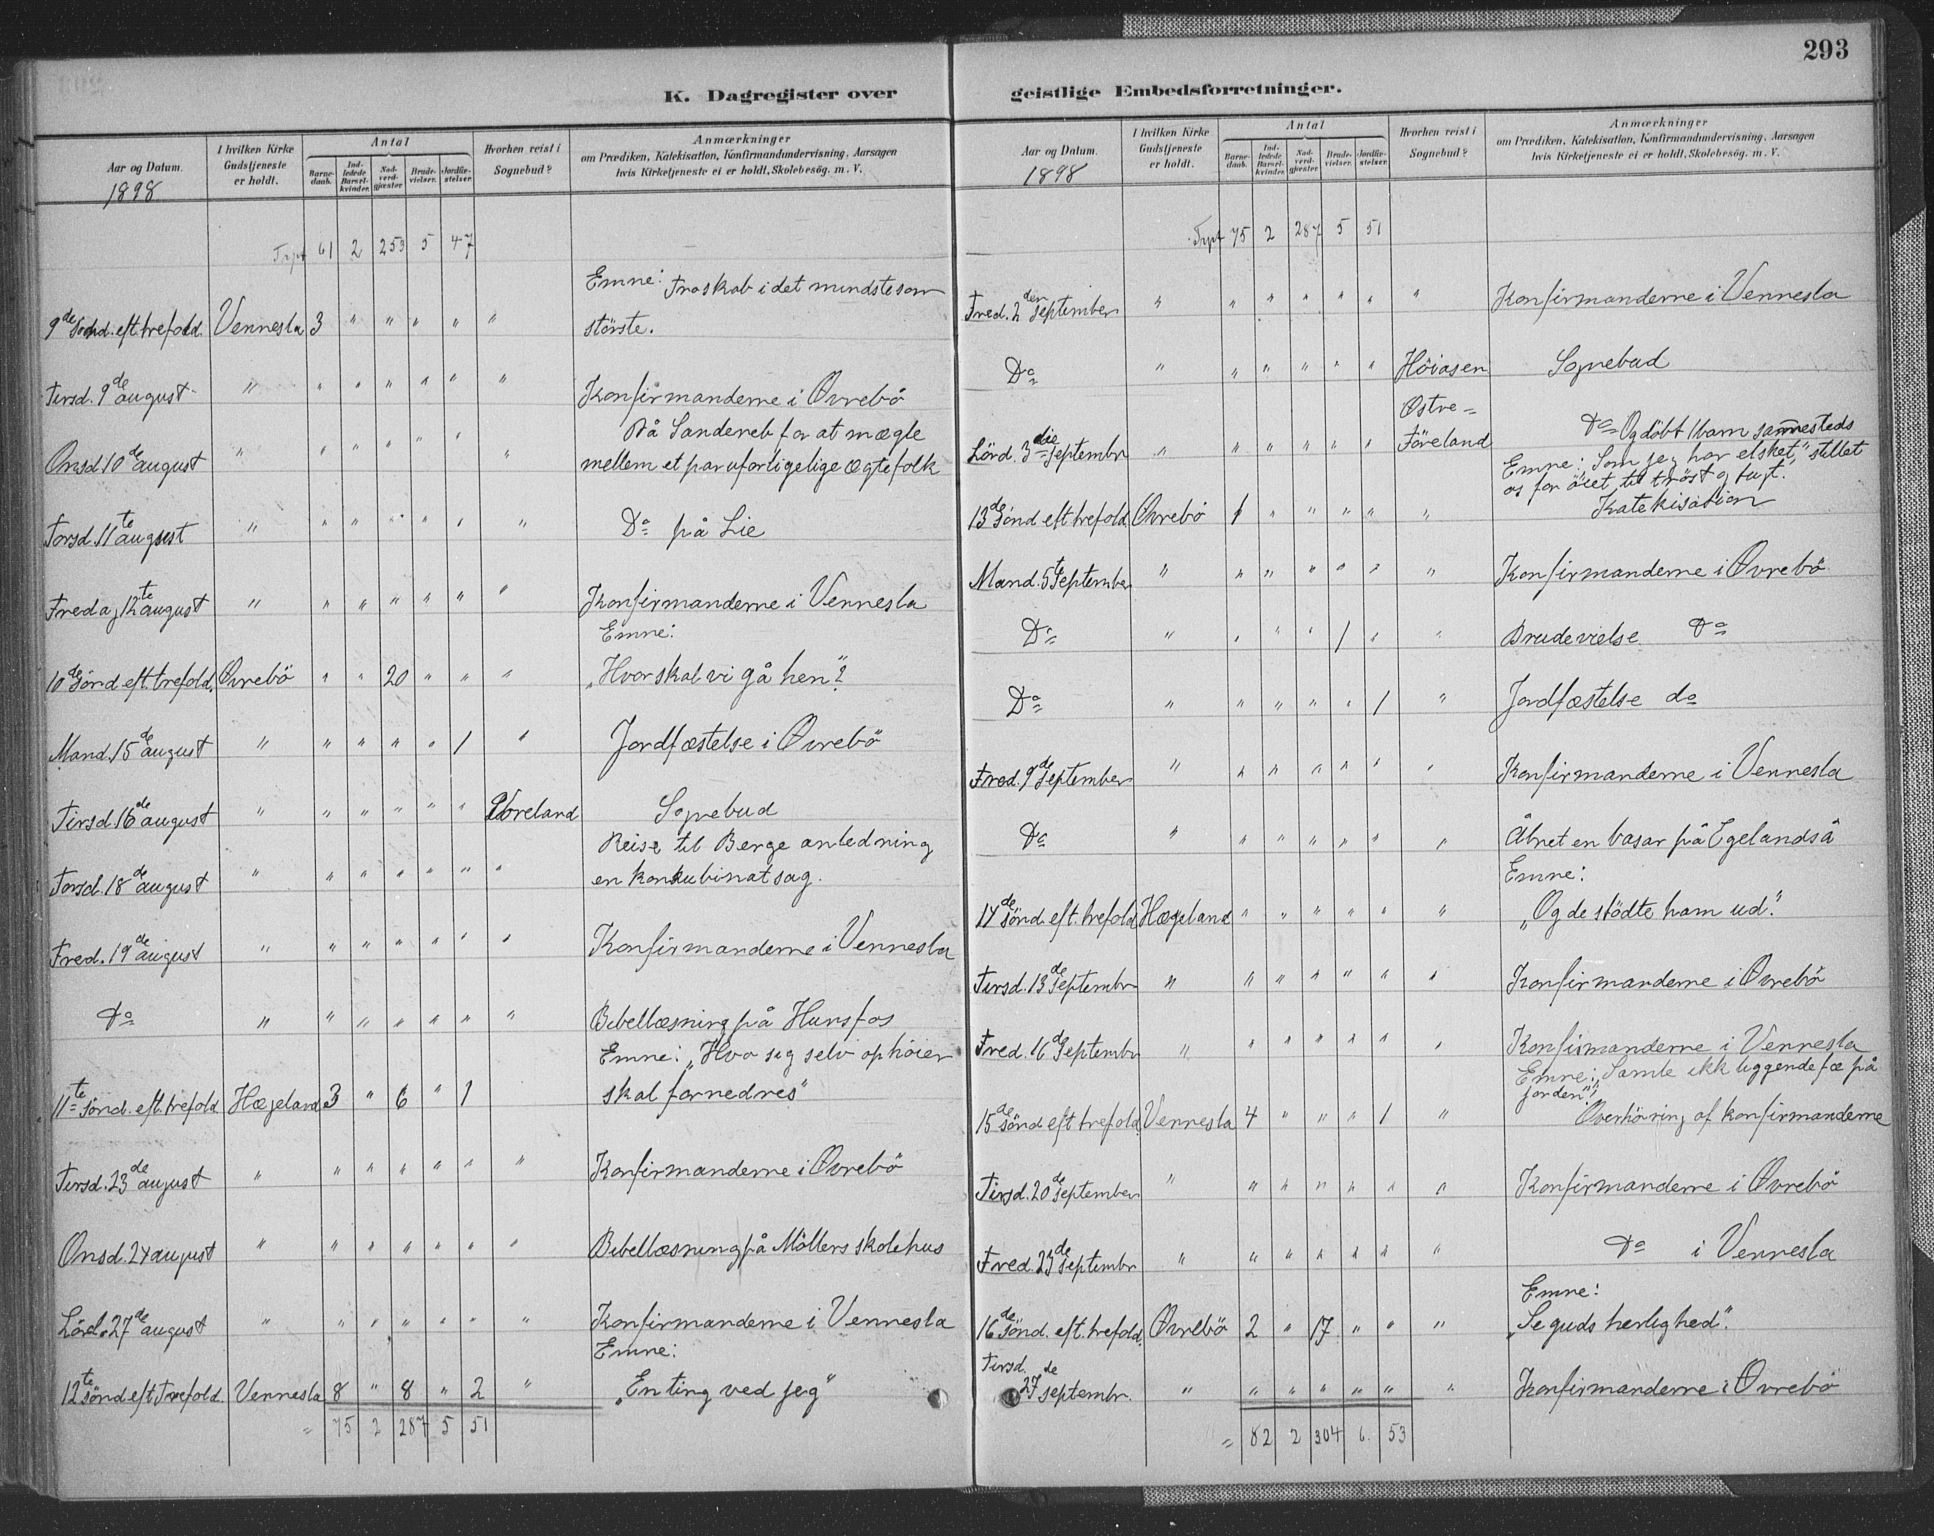 K. Dagregister over
Aar og Datum.
1898
I hvilken Kirke Gudstjeneste er holdt.
Antal
Barnedaab.
Indledede Barselkvinder.
Nadverdgjæster
Brudevielser.
Jordfæstelser.
Hvorhen reist i Sognebud?
Anmærkninger
om Prædiken, Katekisation, Konfirmandundervisning, Aarsagen
hvis Kirketjeneste ei er holdt, Skolebesøg. m. V.
Trpt 61 2 253 5 47
Emne: Troskab i det mindste som
9de Sönd. eft. trefold. Vennesla 3 " " " " " störste.
Tirsd. 9de august " " " " " " " Konfirmanderne i Övrebö
På Sandereb for at mægle
Onsd 10de august " " " " " " " mellem et par uforligelige ægtefolk
Torsd. 11te august " " " " " " " Do på Lie
Fredag 12te august " " " " " " " Konfirmanderne i Vennesla
Emne:
10de Sönd eft. trefold. Övrebö " " 20 " " " "Hvor skal vi gå hen"?
Mand. 15de august " " " " " 1 " Jordfæstelse i Övrebö
Tirsd. 16de august " " " " " " Loreland Sognebud
Reise til Berge anledning
Torsd. 18de august " " " " " " " en konkubinatsag.
Fred. 19de august " " " " " " " Konfirmanderne i Vennesla
Do " " " " " " " Bibellæsning på Hunsfos
Emne: "Hvo sig selv ophöier
11te sönd. eft. trefold Hægeland 3 " 6 " 1 skal fornedres"
Tirsd. 23de august " " " " " " " Konfirmanderne i Övrebö
Onsd. 24 august " " " " " " " Bibellæsning på Möllers skolehus
Lörd. 27de august " " " " " " " Konfirmanderne i Vennesla
Emne:
12te sönd eft Trefold. Vennesla 8 " 8 " 2 " "En ting ved jeg"
= 75 2 287 5 51
293
geistlige Embedsforretninger.
Aar og Datum.
1898
I hvilken Kirke Gudstjeneste er holdt.
Antal
Barnedaab.
Indledede Barselkvinder.
Nadverdgjæster
Brudevielser.
Jordfæstelser.
Hvorhen reist i Sognebud?
Anmærkninger
om Prædiken, Katekisation, Konfirmandundervisning, Aarsagen
hvis Kirketjeneste ei er holdt, Skolebesøg. m. V.
Trpt 75 2 287 5 51
Fred. 2den september " " " " " " " Konfirmanderne i Vennesla
Do " " " " " " Höiåsen Sognebud
Östre-
Lörd. 3die septembr " " " " " " Föreland Do Og döbt 1 barn sammesteds
Emne: "Som jeg har elsket", stillet
os for öiet til tröst og tugt.
13de Sönd eft trefold Övrebö 1 " " " " " Katekisation
Mand. 5te September " " " " " " " Konfirmanderne i Övrebö
Do " " " " 1 " " Brudevielse Do
Do " " " " " 1 " Jordfæstelse do
Fred. 9de September " " " " " " " Konfirmanderne i Vennesla
Do " " " " " " " Åbnet en basar på Egelandså
Emne:
14de sönd. eft. trefold. Hægeland " " " " " " "Og de stödte ham ud".
Tirsd. 13de Septembr " " " " " " " Konfirmanderne i Övrebö
Fred. 16de Septembr " " " " " " " Konfirmanderne i Vennesla
Emne: "Samle ikk liggendefæ på
jorden"!
15de sönd eft trefold. Vennesla 4 " " " 1 " Overhöring af konfirmanderne
Tirsd. 20de September " " " " " " " Konfirmanderne i Övrebö
Fred. 23de Septembr " " " " " " " Do i Vennesla
Emne:
16de Sönd. eft. trefold. Övrebö 2 " 17 " " " "Se guds herlighed".
Tirsd.
27de septembr. " " " " " " " Konfirmanderne i Övrebö
= 82 2 304 6 53